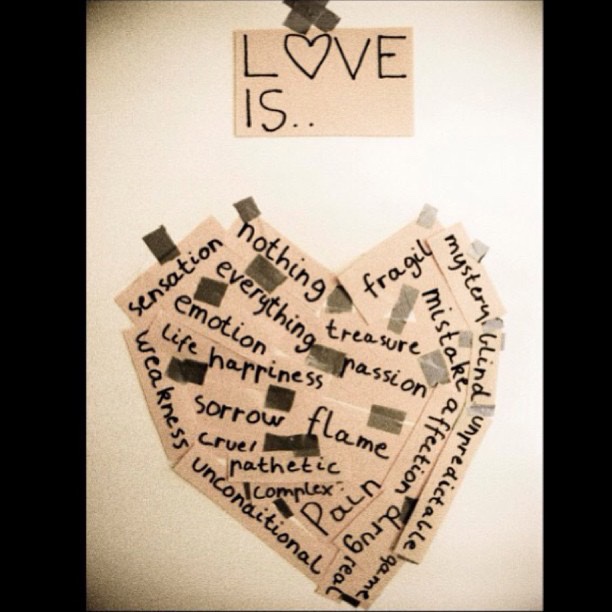 L♡VE
IS..
nothing
sensation
everything
emotion
fragil
mystery
treasure
mistake
life
happiness
passion
blind
weakness
sorrow
flame
affection
unpredictable
cruel
pathetic
complex
pain
unconaitional
drug
real
game